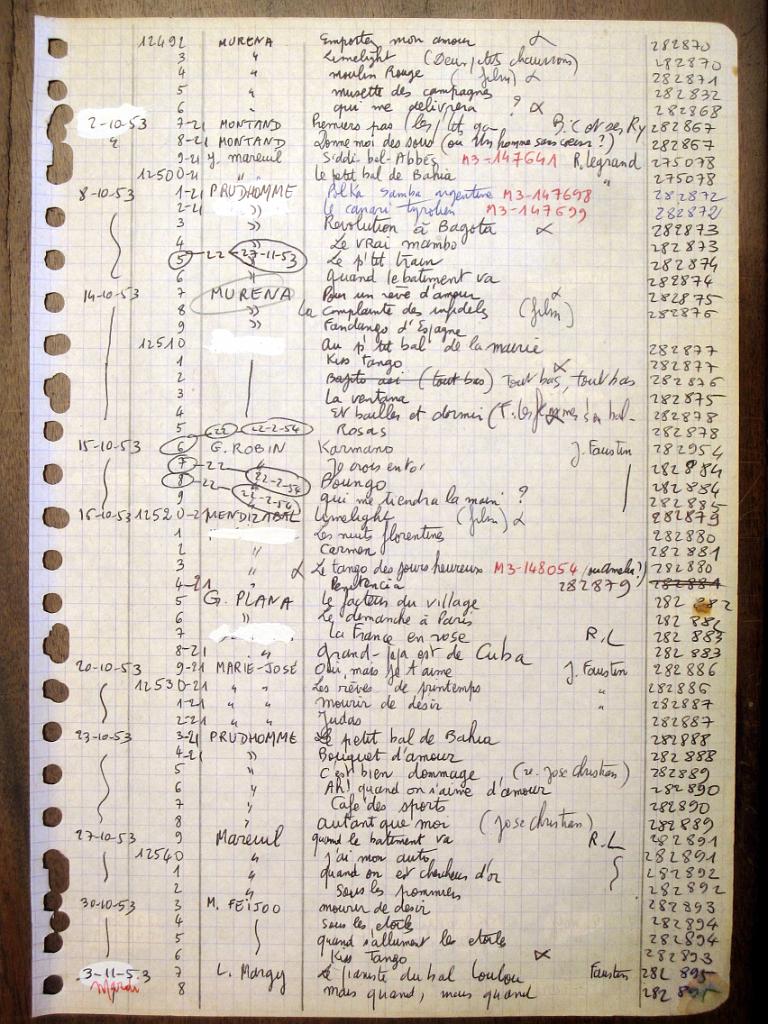 12492 MURENA Emportez mon amour α 282870
3 " Limelight (Deux petits chaussons) 282870
4 " moulin Rouge (film) α 282871
5 " musette des campagnes 282832
6 " qui me delivrera ? α 282868
2-10-53 7-21 MONTAND Premiers pas (les) 282867
" 8-21 MONTAND Donne moi des sous (ou Un homme sans cœur ?) 282867
9-21 y. mareuil Siddi-bel-Abbès M3-147641 R. Legrand 275078
12500-21 " le petit bal de Bahia " 275078
8-10-53 1-21 PRUDHOMME Polka Samba argentine M3-147698 282872
2-21 " le canari tyrolien M3-147699 282872
3 " Revolution à Bagota α 282873
4 " Le vrai mambo 282873
5 -22- 27-11-53 Le p'tit train 282874
6 " quand le batiment va 282874
14-10-53 7 MURENA Pour un reve d'amour α 282875
8 " la complainte des infidels (film) 282876
9 " Fandango d'Espagne
12510 au p'tit bal de la mairie 282877
1 Kiss Tango α 282877
2 (tout bas) Tout bas, tout bas 282876
3 La ventana 282875
4 Et bailles et dormir 282878
5 22 22-2-54 Rosas 282878
15-10-53 6 G. ROBIN Karmano J. Faustin 282954
7 -22 " Je crois en toi 282884
8 -22 22-2-54 Boungo 282884
9 22-2-54 qui me tiendra la main ? 282885
16-10-53 12520-2 MENDIZABAL Limelight (film) α 282879
1 Les nuits florentines 282880
2 " Carmen 282881
3 " α Le tango des jours heureux M3-148054 282880
4-21 " Penitencia 282879) 282881
5 G. PLANA le facteur du village 282 882
6 " Le dimanche à Paris 282 882
7 La France en rose R.L 282 883
8-21 " Grand-papa est de Cuba 282 883
20-10-53 9-21 MARIE-JOSÉ Oui, mais je t'aime J. Faustin 282886
12530-21 " " Les rêves de printemps " 282886
1-21 " " mourir de désir " 282887
2-21 " " Judas 282887
23-10-53 3-21 PRUDHOMME le petit bal de Bahia 282888
4-21 " Bouquet d'amour 282888
5 " c'est bien dommage (re. Jose christian) 282889
6 " Ah! quand on s'aime d'amour 282890
7 " Café des sports 282890
8 " autant que moi (Jose christian) 282889
27-10-53 9 Mareuil quand le batiment va R.L 282891
12540 " j'ai mon auto 282891
1 " quand on est chercheur d'or 282892
2 " Sous les pommiers 282892
30-10-53 3 M. FEIJOO mourir de desir 282893
4 sous les etoiles 282894
5 quand s'allument les etoiles 282894
6 Kiss Tango α 282893
3-11-53 7 L. Margy Le pianiste du bal Loulou Faustin 282 895
Mardi 8 mais quand, mais quand 282 895